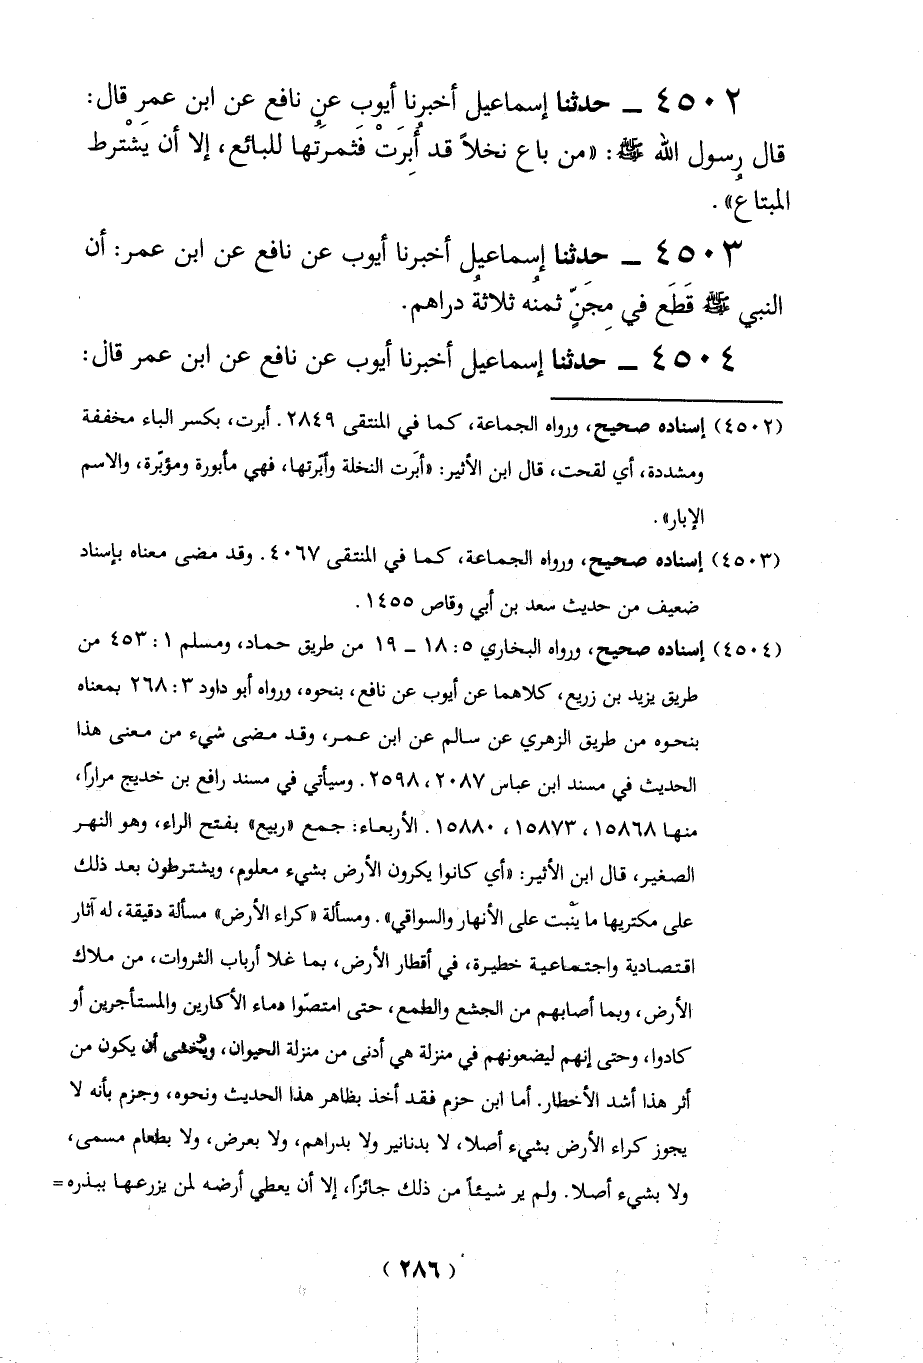 ٤٥٠٢ ــ حدثنا إسماعيل أخبرنا أيوب عن نافع عن ابن عمر قال:
قال رسول الله ﷺ: «من باع نخلاً قد أُبِرَتْ فَثمرَتُها للبائع، إلا أن يَشْترط
المبتاعُ».
٤٥٠٣ ــ حدثنا إسماعيل أخبرنا أيوب عن نافع عن ابن عمر: أن
النبي ﷺ قَطَع في مِجَنّ ثمنُه ثلاثةُ دراهم.
٤٥٠٤ ــ حدثنا إسماعيل أخبرنا أيوب عن نافع عن ابن عمر قال:
(٤٥٠٢) إسناده صحيح، ورواه الجماعة، كما في المنتقى ٢٨٤٩. أبرت، بكسر الباء مخففة
ومشددة، أي لقحت، قال ابن الأثير: «أبَرت النخلة وأبّرتها، فهي مأبورة ومؤبّرة، والاسم
الإبار».
(٤٥٠٣) إسناده صحيح، ورواه الجماعة، كما في المنتقى ٤٠٦٧. وقد مضى معناه بإسناد
ضعيف من حديث سعد بن أبي وقاص ١٤٥٥.
(٤٥٠٤) إسناده صحيح، ورواه البخاري ٥: ١٨ ــ ١٩ من طريق حماد، ومسلم ١: ٤٥٣ من
طريق يزيد بن زريع، كلاهما عن أيوب عن نافع، بنحوه، ورواه أبو داود ٣: ٢٦٨ بمعناه
بنحوه من طريق الزهري عن سالم عن ابن عمر، وقد مضى شيء من معنى هذا
الحديث في مسند ابن عباس ٢٠٨٧، ٢٥٩٨. وسيأتي في مسند رافع بن خديج مراراً،
منها ١٥٨٦٨، ١٥٨٧٣، ١٥٨٨٠. الأربعاء: جمع «ربيع» بفتح الراء، وهو النهر
الصغير، قال ابن الأثير: «أي كانوا يكرون الأرض بشيء معلوم، ويشترطون بعد ذلك
على مكتريها ما يَنْبت على الأنهار والسواقي». ومسألة «كراء الأرض» مسألة دقيقة، له آثار
اقتصادية واجتماعية خطيرة، في أقطار الأرض، بما غلا أرباب الثروات، من ملاك
الأرض، وبما أصابهم من الجشع والطمع، حتى امتصّوا دماء الأكارين والمستأجرين أو
كادوا، وحتى إنهم ليضعونهم في منزلة هي أدنى من منزلة الحيوان، ويُخشى أن يكون من
أثر هذا أشد الأخطار. أما ابن حزم فقد أخذ بظاهر هذا الحديث ونحوه، وجزم بأنه لا
يجوز كراء الأرض بشيء أصلا، لا بدنانير ولا بدراهم، ولا بعرض، ولا بطعام مسمى،
ولا بشيء أصلا. ولم ير شيئاً من ذلك جائزاً، إلا أن يعطي أرضه لمن يزرعها ببذره =
(٢٨٦)